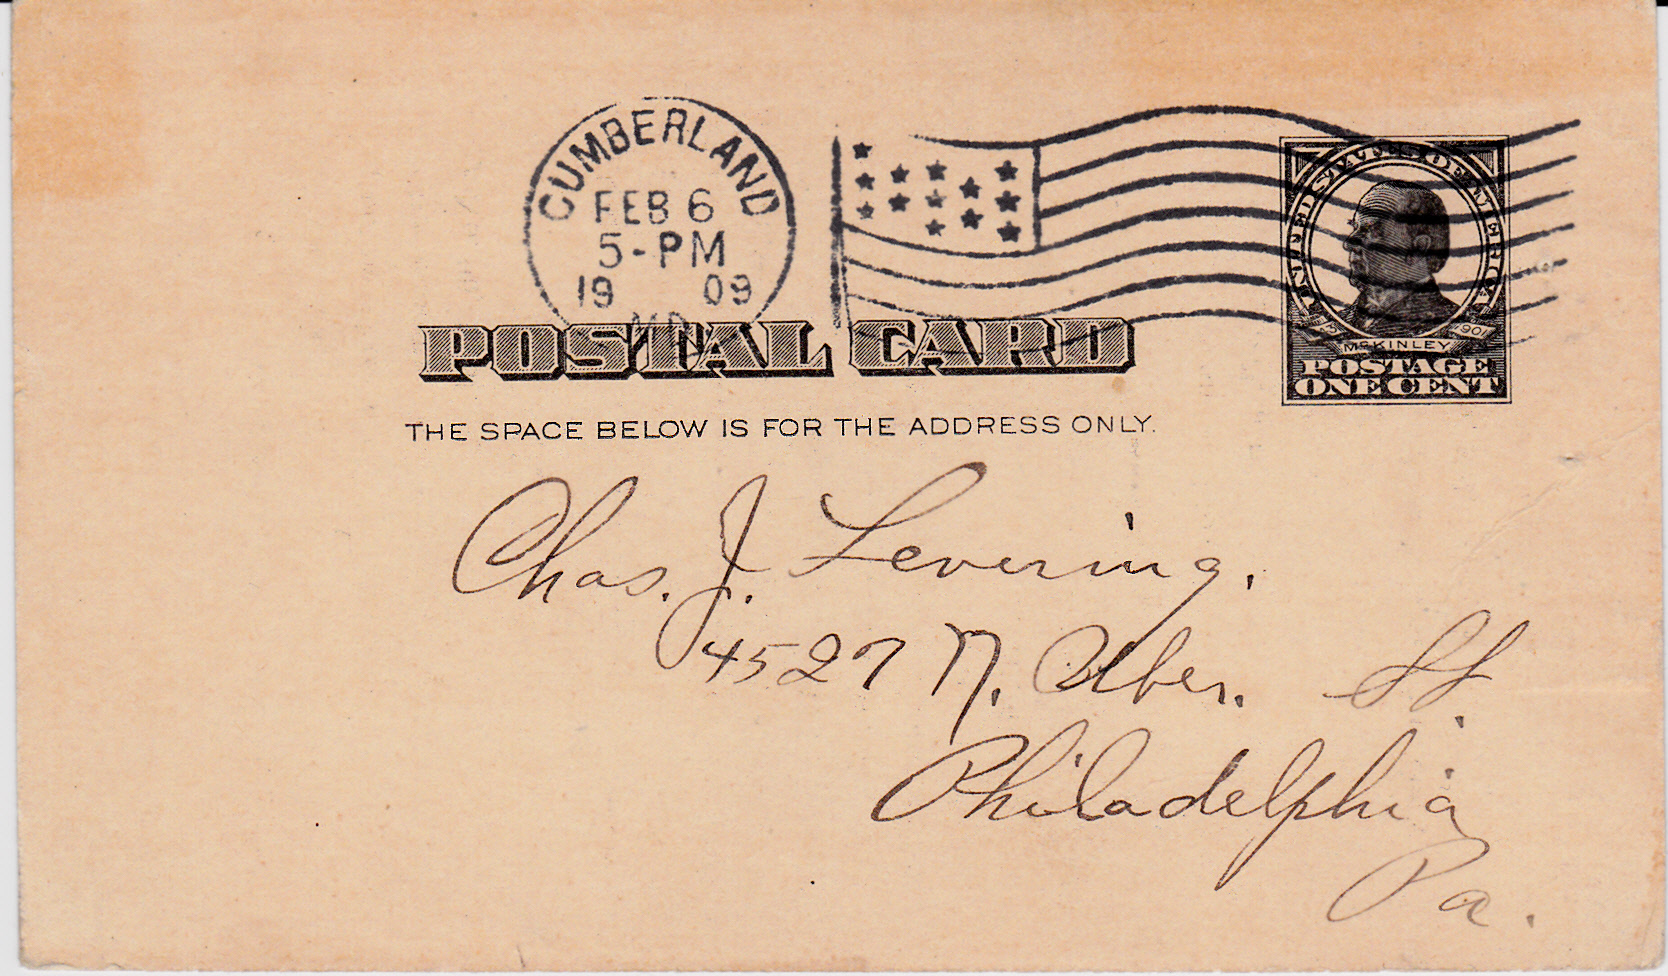 CUMBERLAND
FEB 6
5-PM
19 09
MD.
UNITED STATES OF AMERICA
1901
McKINLEY
POSTAGE
ONE CENT
POSTAL CARD
THE SPACE BELOW IS FOR THE ADDRESS ONLY.
Chas. J. Levering.
4527 N. Uber. St.
Philadelphia
Pa.